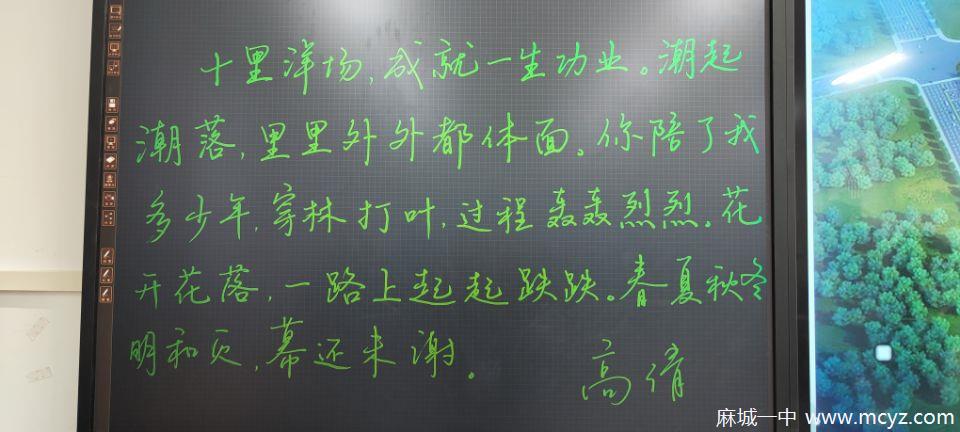 十里洋场,成就一生功业。潮起
潮落,里里外外都体面。你陪了我
多少年,穿林打叶,过程轰轰烈烈。花
开花落,一路上起起跌跌。春夏秋冬
明和灭,幕还未谢。
高倩
麻城一中 www.mcyz.com